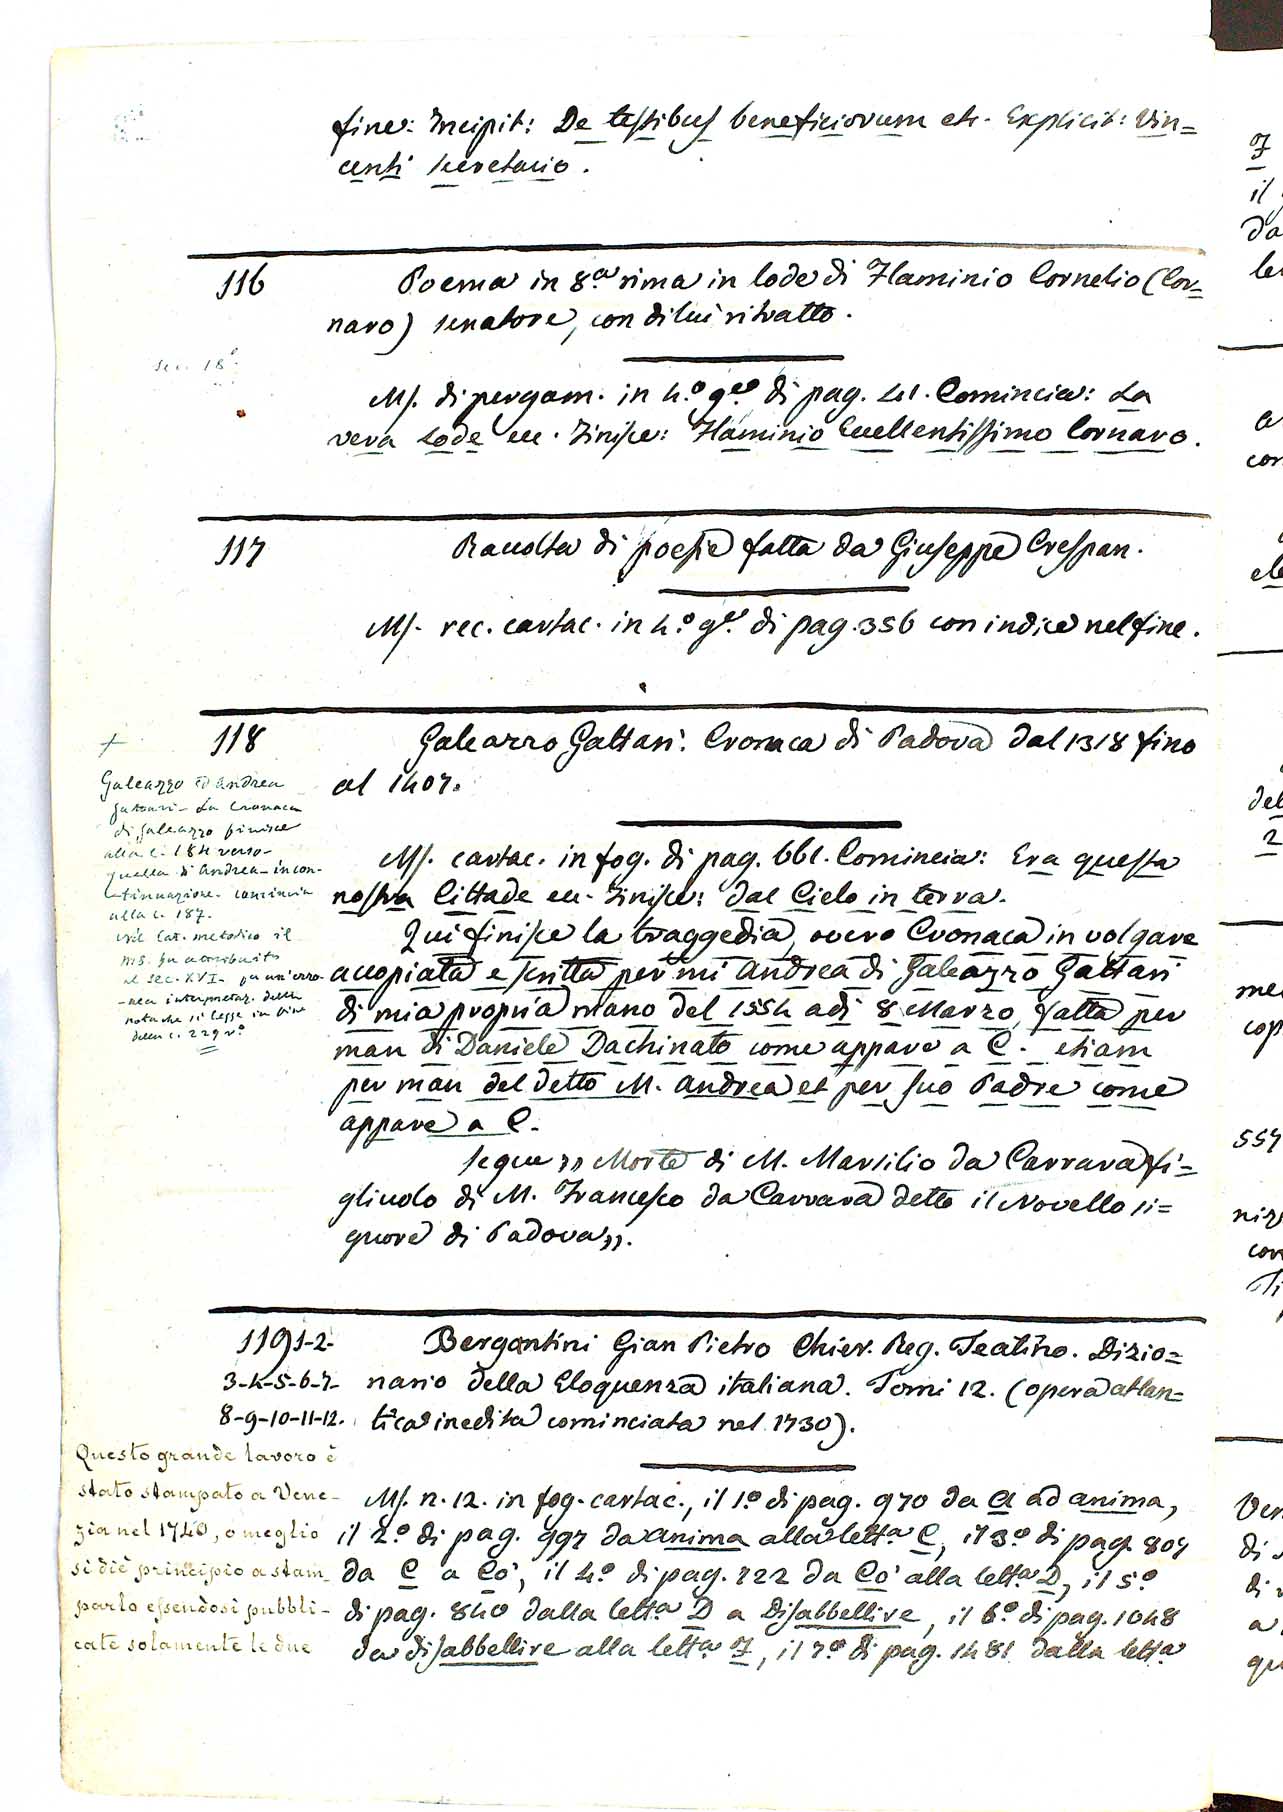 fine: Incipit: De testibus beneficiorum etc. Explicit: Vin=
centi secretario.
116
Poema in 8.ª rima in lode di Flaminio Cornelio (Cor=
naro) senatore, con di lui ritratto.
sec. 18º
Ms. di pergam. in 4.º g.e di pag. 41. Comincia: La
vera Lode ecc. Finisce: Flaminio Eccellentissimo Cornaro.
117
Raccolta di poesie fatta da Giuseppe Crespan.
Ms. rec. cartac. in 4.º g.e di pag. 356 con indice nel fine.
118
Galeazzo Gattari: Cronaca di Padova dal 1318 fino
al 1407.
+
Galeazzo ed Andrea
Gattari - La Cronaca
di Galeazzo finisce
alla c. 184 verso -
quella di Andrea - in con-
tinuazione - comincia
alla c. 187.
Nel Cat. metodico il
ms. fu attribuito
al sec. XVI - per un'erro-
nea interpretaz. della
nota che si legge in fine
della c. 229 rº
Ms. cartac. in fog. di pag. 661. Comincia: Era questa
nostra Cittade ecc. Finisce: dal Cielo in terra.
Qui finisce la traggedia, overo Cronaca in volgare
accopiata e scritta per mi Andrea di Galeazzo Gattari
di mia propria mano del 1554 adi 8 Marzo, fatta per
man di Daniele Dachinato come appare a C. etiam
per man del detto M. Andrea et per suo Padre come
appare a C.
Segue „ Morte di M. Marsilio da Carrara fi=
gliuolo di M. Francesco da Carrara detto il Novello si=
gnore di Padova „.
119 1-2-
3-4-5-6-7-
8-9-10-11-12.
Bergantini Gian Pietro Chier. Reg. Teatino. Dizio=
nario della Eloquenza italiana. Tomi 12. (opera atlan=
tica inedita cominciata nel 1730).
Questo grande lavoro è
stato stampato a Vene-
zia nel 1740, o meglio
si diè principio a stam-
parlo essendosi pubbli-
cate solamente le due
Ms. n. 12. in fog. cartac., il 1.º di pag. 970 da A ad anima,
il 2.º di pag. 997 da anima alla lett.ª C, il 3.º di pag. 807
da C a Co, il 4.º di pag. 722 da Co alla lett.ª D, il 5.º
di pag. 840 dalla lett.ª D a Disabbellire, il 6.º di pag. 1048
da disabbellire alla lett.ª F, il 7.º di pag. 1481 dalla lett.ª